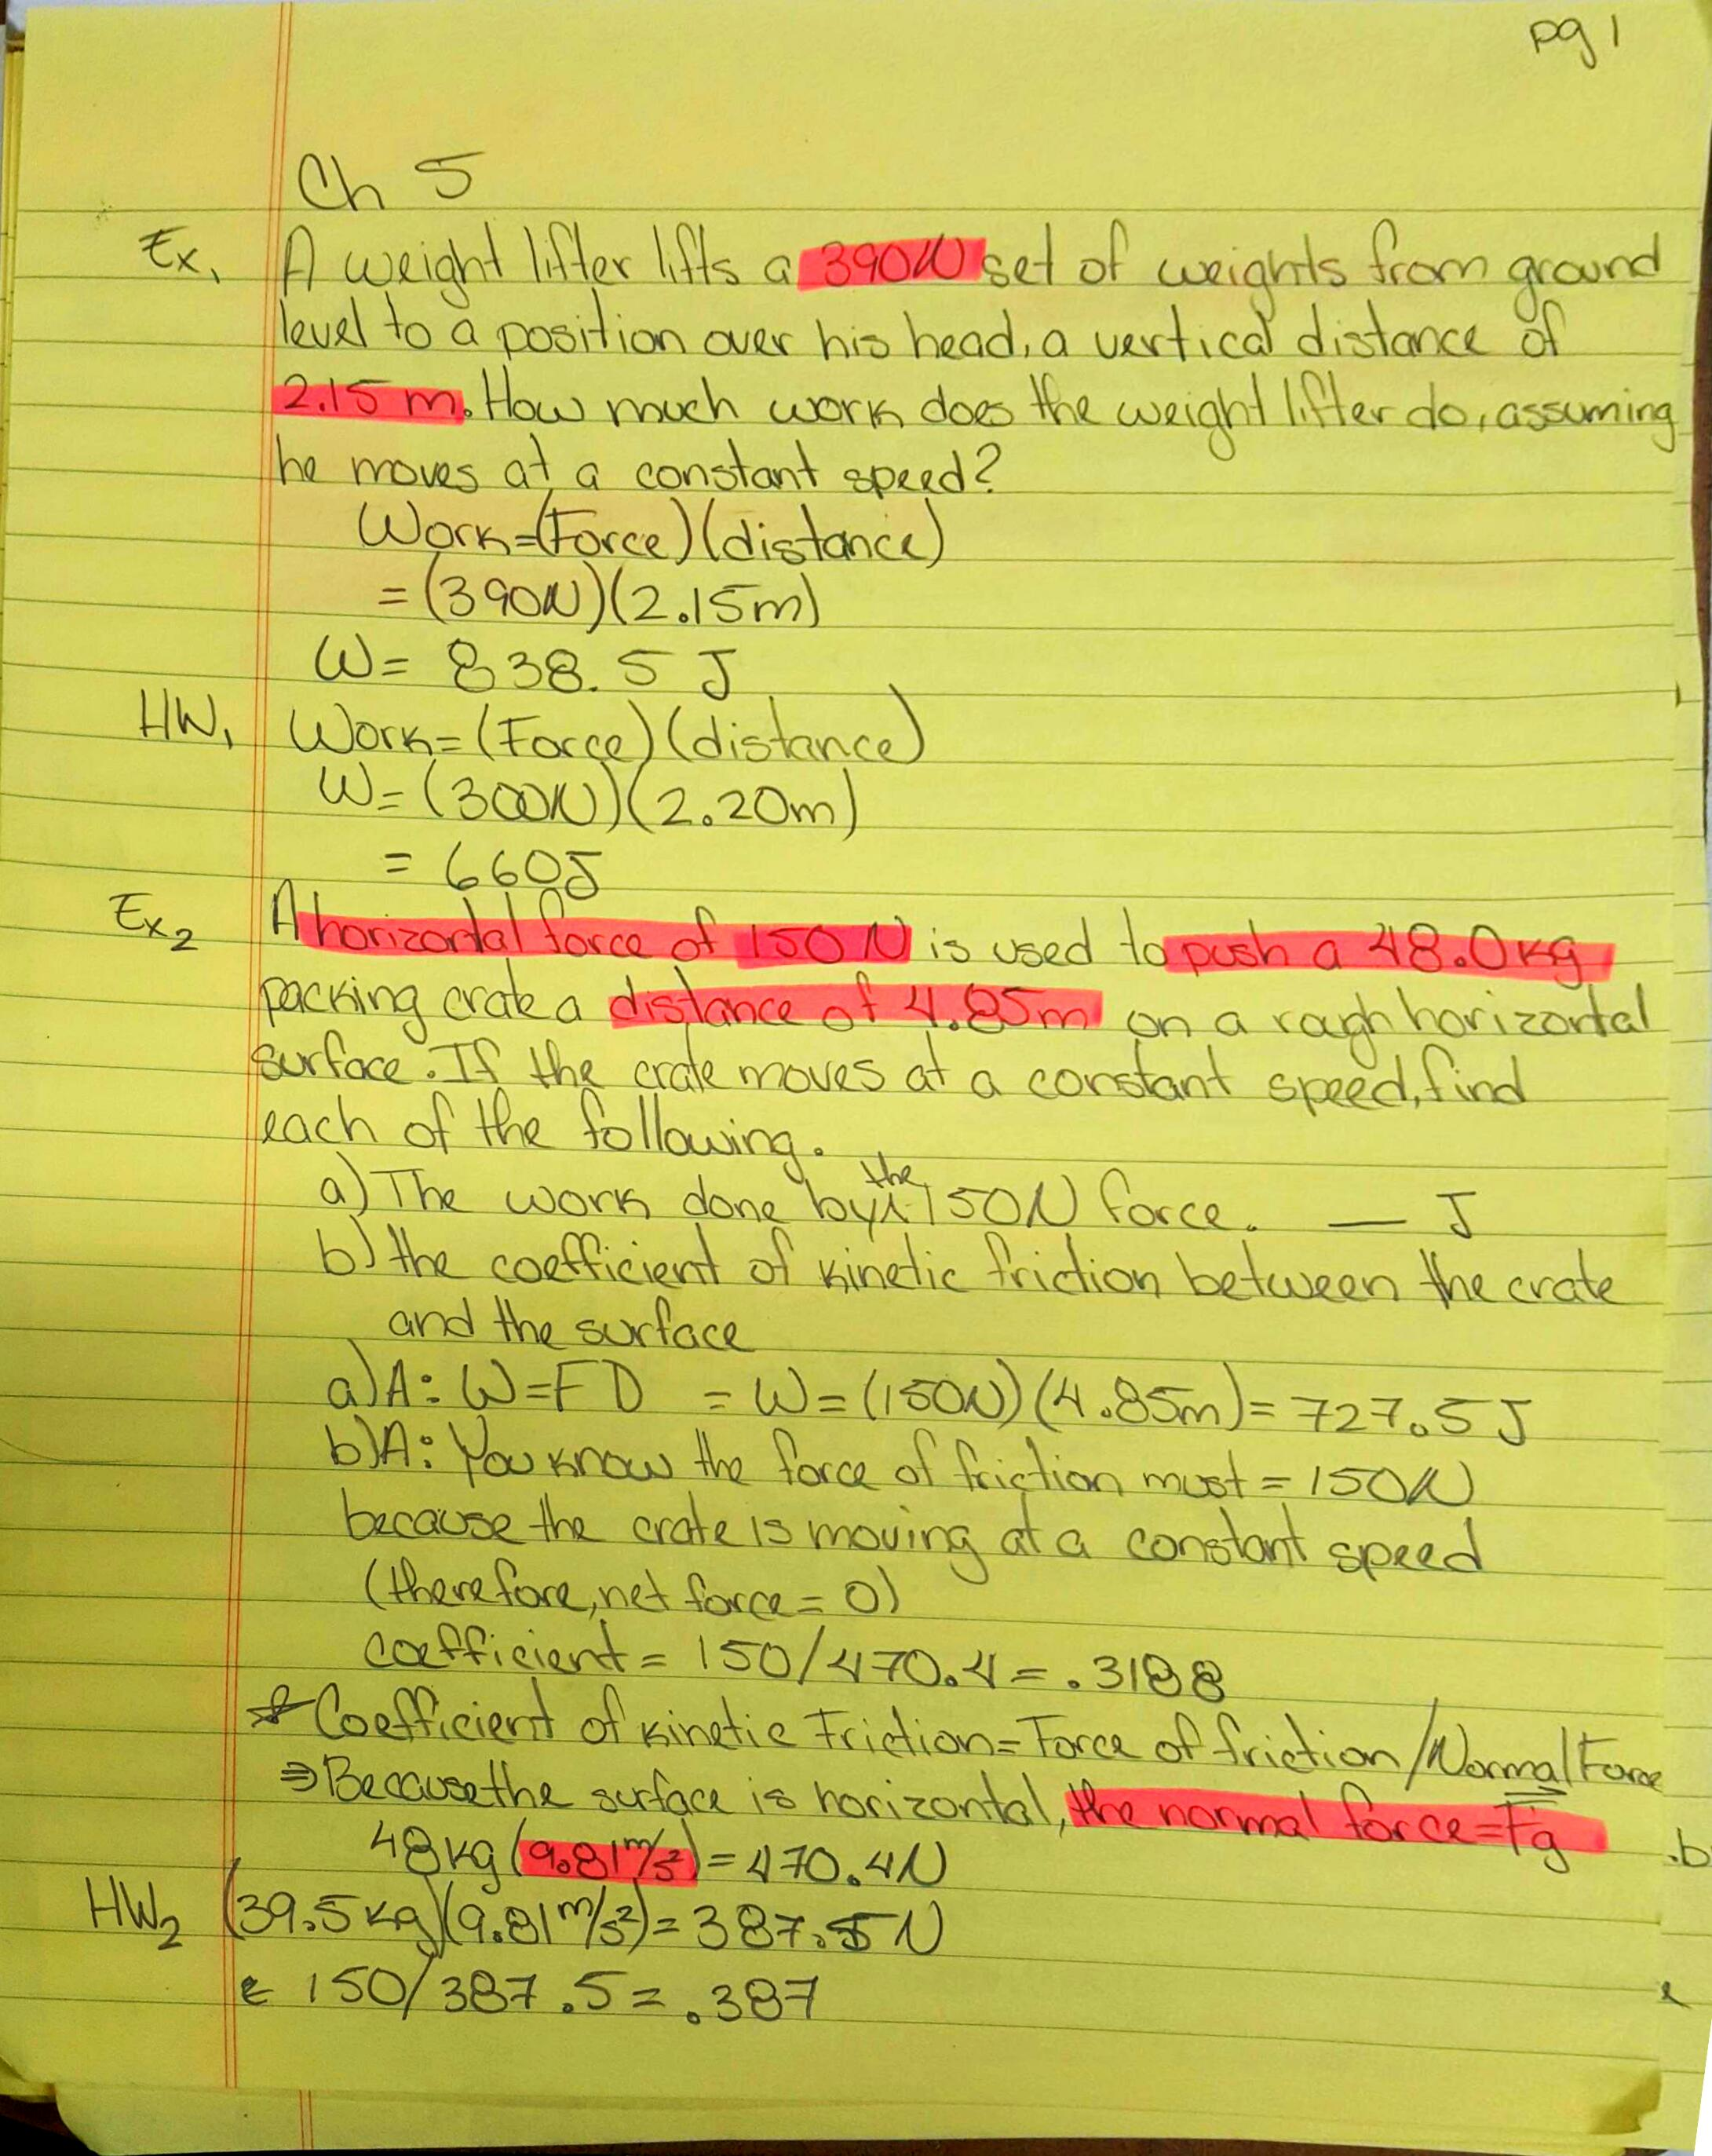 pg 1
Ch 5
Ex, A weight lifter lifts a 390N set of weights from ground
level to a position over his head, a vertical distance of
2.15 m. How much work does the weight lifter do, assuming
he moves at a constant speed?
Work=(Force)(distance)
=(390N)(2.15m)
W= 838.5 J
HW, Work=(Force)(distance)
W=(300N)(2.20m)
= 660J
Ex2 A horizontal force of 150 N is used to push a 48.0kg
packing crate a distance of 4.85m on a rough horizontal
surface. If the crate moves at a constant speed, find
each of the following.
a) The work done by the 150N force. __ J
b) the coefficient of kinetic friction between the crate
and the surface
a) A: W=FD = W=(150N)(4.85m)= 727.5 J
b) A: You know the force of friction must = 150N
because the crate is moving at a constant speed
(therefore, net force = 0)
coefficient = 150/470.4 = .3188
* Coefficient of kinetic Friction= Force of friction/Normal Force
⇒Because the surface is horizontal, the normal force=Fg
48kg(9.81m/s²)=470.4N .b
HW2 (39.5kg)(9.81m/s²)=387.5N
150/387.5=.387